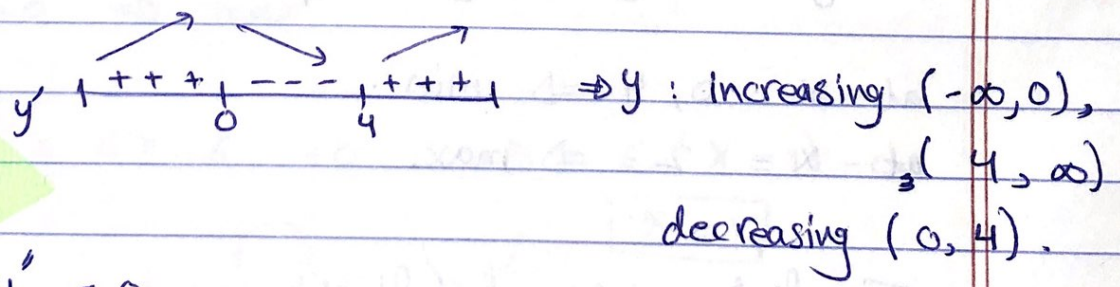 y' + + + - - - + + + ⇒ y : increasing (-∞,0),
0 4
,( 4, ∞)
decreasing (0,4).